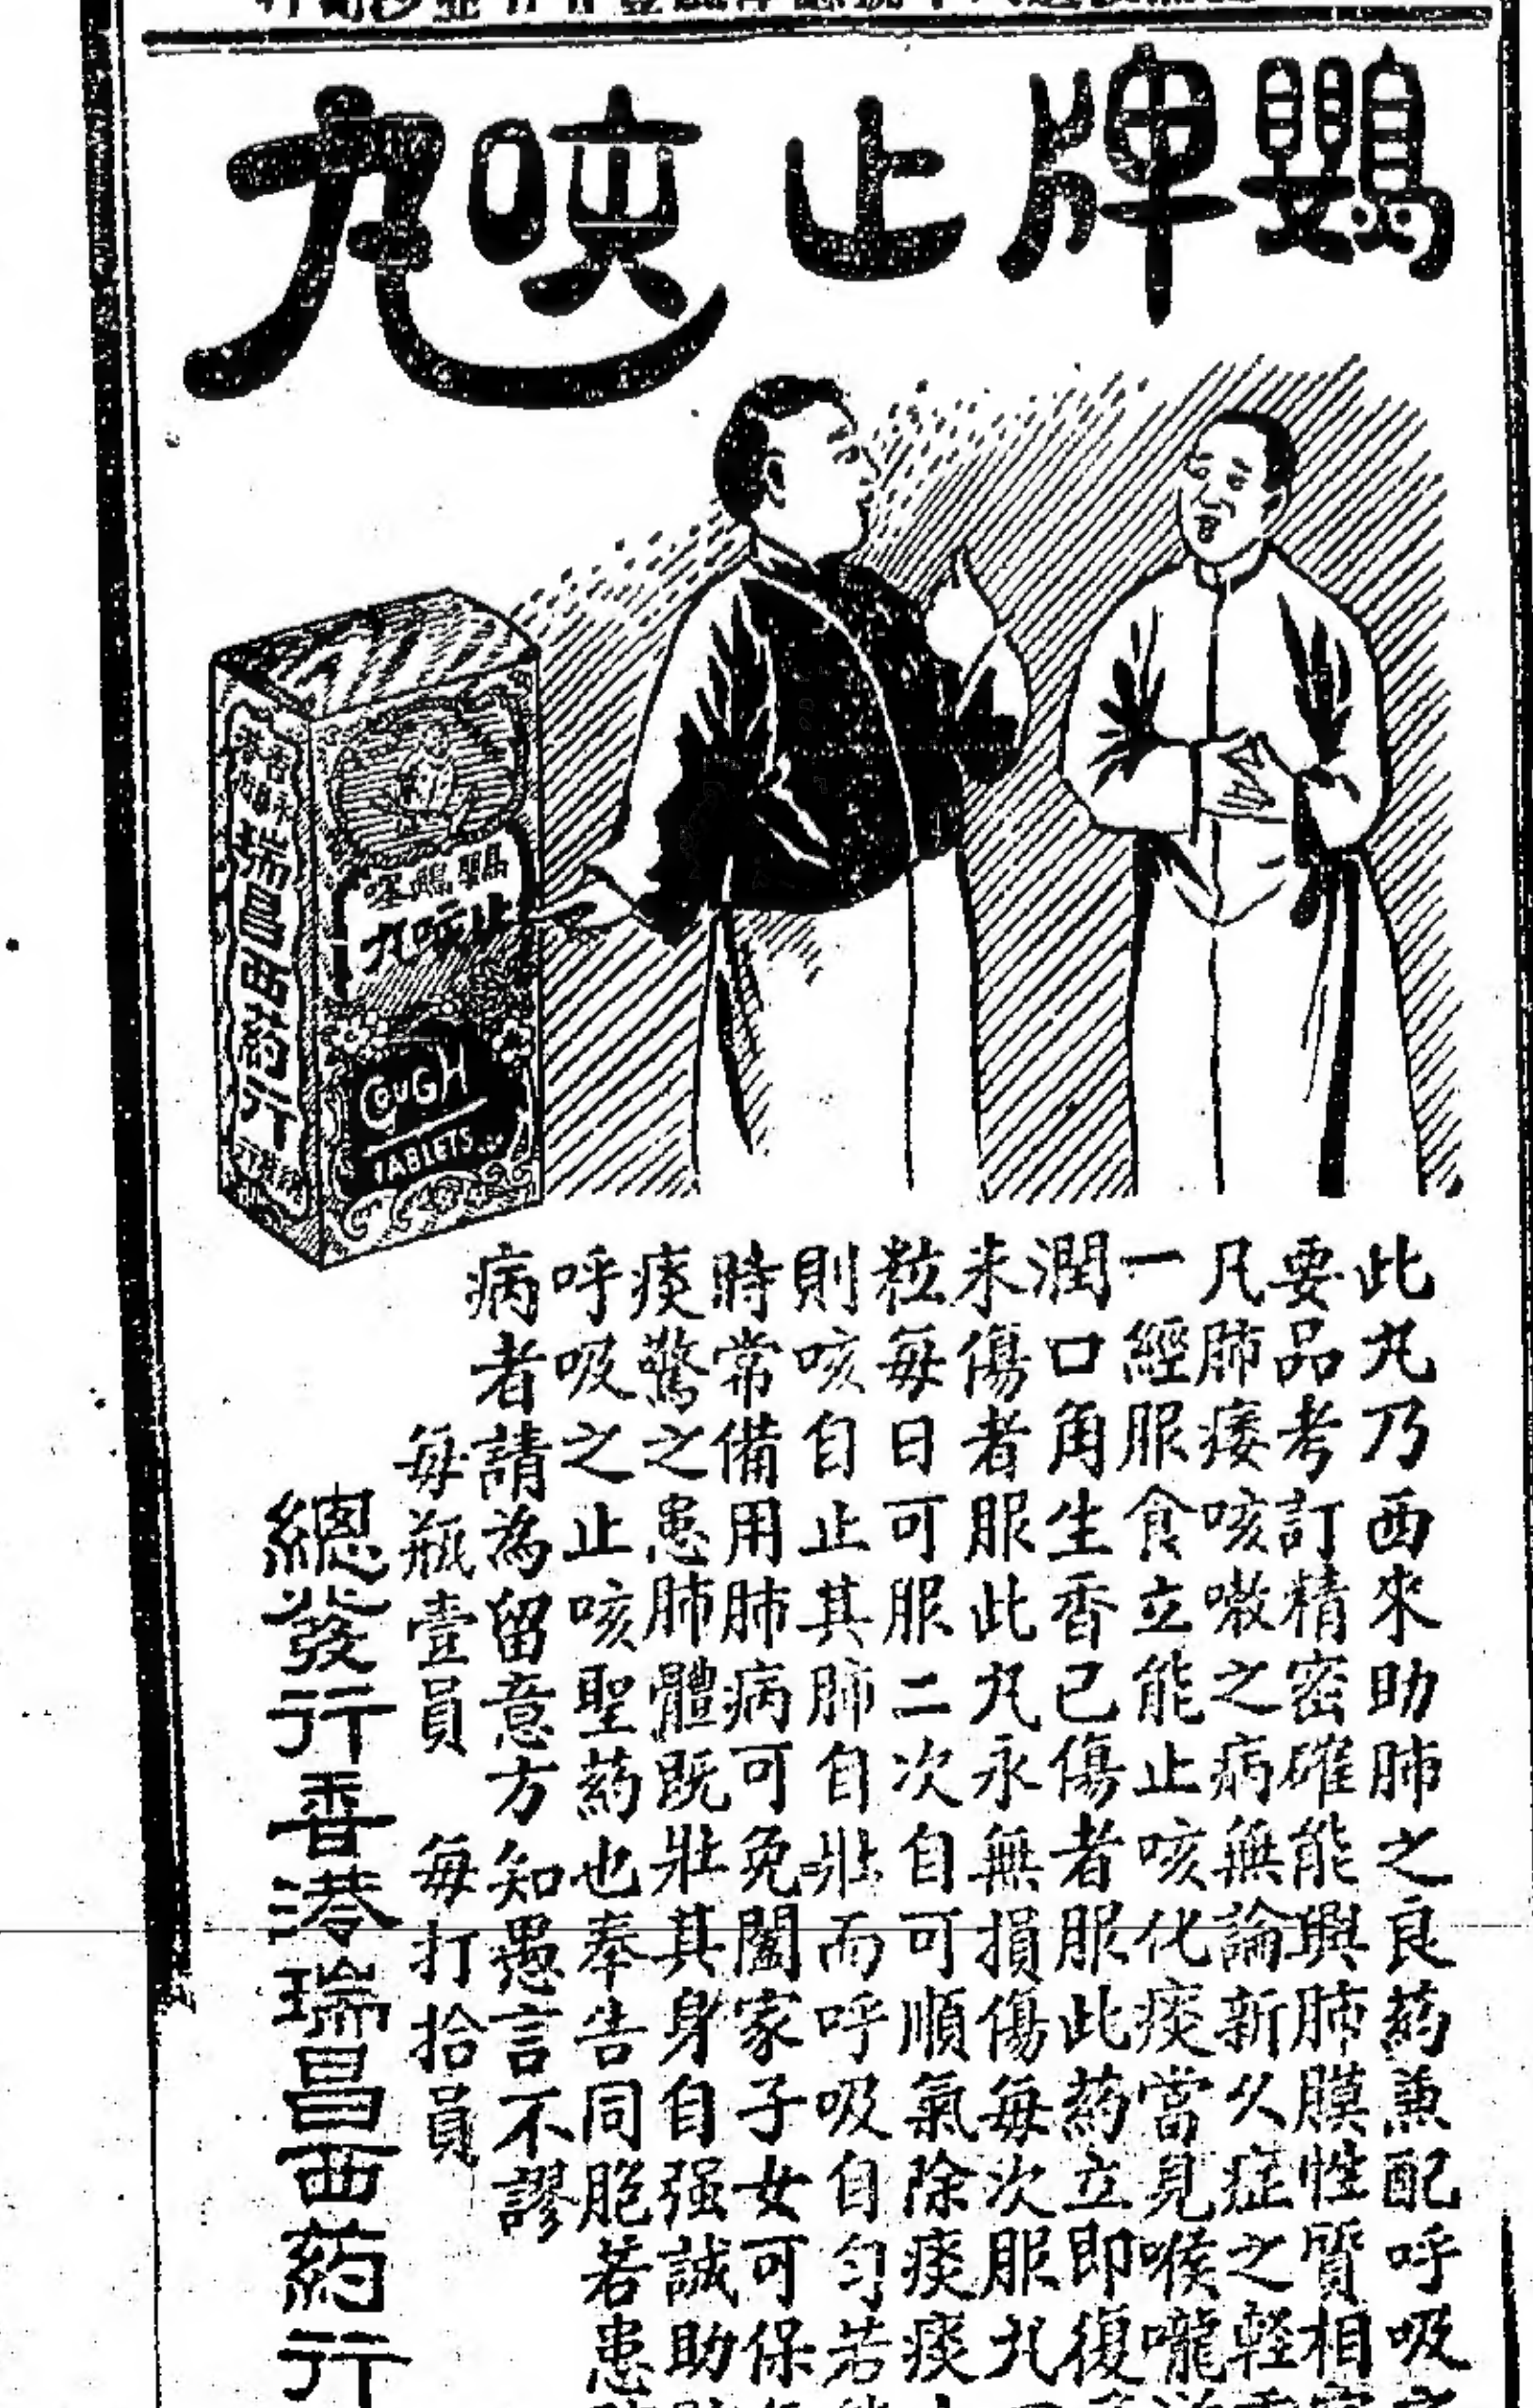 鸚牌止咳丸
瑞昌西葯行
鸚鵡嘜
止咳丸
COUGH
TABLETS
此丸乃西來助肺之良葯兼配呼吸
要品考訂精密確能與肺膜性質相
凡肺痿咳嗽之病無論新久症之輕
一經服食立能止咳化痰當見喉嚨
潤口角生香已傷者服此葯立即復
未傷者服此丸永無損傷每次服丸
粒每日可服二次自可順氣除痰痰
則咳自止其肺自壯而呼吸自勻若
時常備用肺病可免闔家子女可保
痰驚之患肺體既壯其身自强誠助
呼吸之止咳聖葯也奉告同胞若患
病者請為留意方知愚言不謬
每瓶壹員 每打拾員
總發行香港瑞昌西葯行